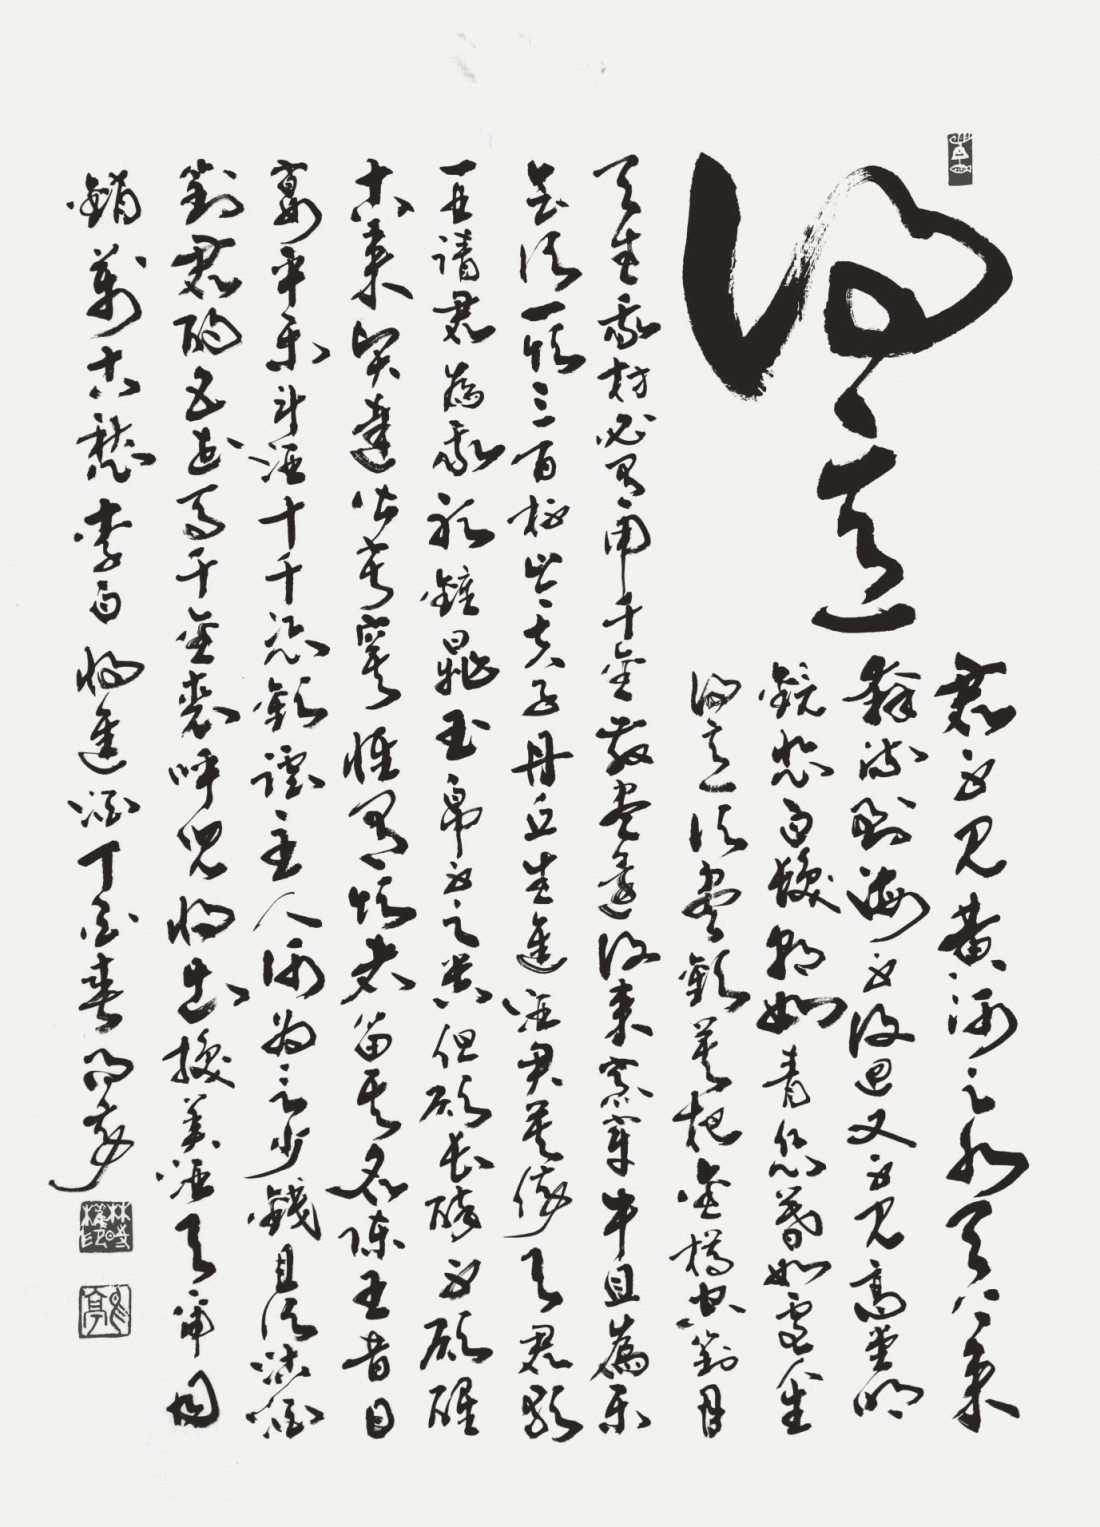 得意
君不見黃河之水天上來
奔流到海不復迴又不見高堂明
鏡悲白髮朝如青絲暮如雪人生
得意須盡歡莫把金樽空對月
天生我材必有用千金散盡還復來烹羊宰牛且為樂
會須一飲三百杯岑夫子丹丘生進酒君莫停與君歌
一曲請君為我聽鐘鼎玉帛不足貴但願長醉不願醒
古來賢達皆寂寞惟有飲者留其名陳王昔日
宴平樂斗酒十千恣歡謔主人何為言少錢且須沽酒
對君酌五花馬千金裘呼兒將出換美酒與爾同
銷萬古愁李白將進酒丁酉春